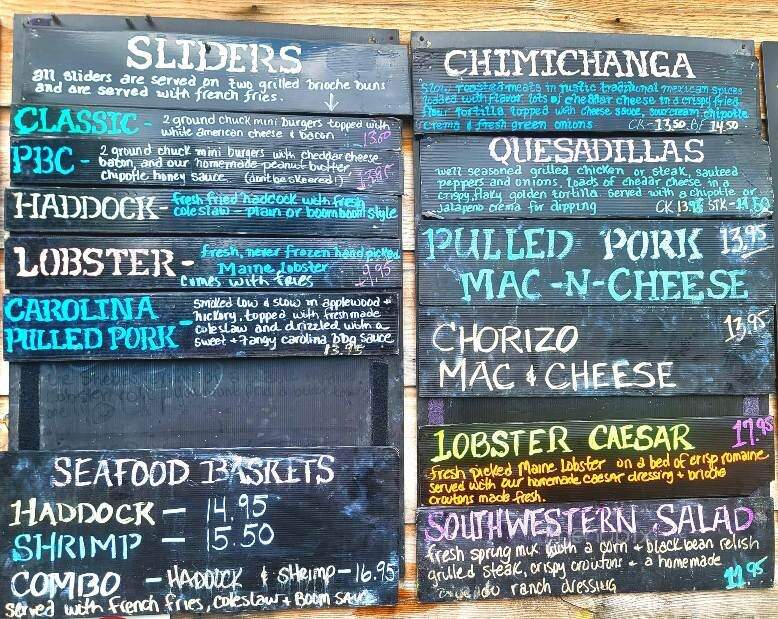 SLIDERS
all sliders are served on two grilled brioche buns
and are served with french fries.
CLASSIC - 2 ground chuck mini burgers topped with
white american cheese & bacon
PBC - 2 ground chuck mini burgers with cheddar cheese
bacon, and our homemade peanut butter
chipotle honey sauce (dont be skeered!)
HADDOCK - fresh fried haddock with fresh
coleslaw - plain or boomboom style
LOBSTER - fresh, never frozen hand picked
Maine lobster 9.95
comes with fries
CAROLINA
PULLED PORK - smoked low & slow in applewood +
hickory, topped with fresh made
coleslaw and drizzled with a
sweet + tangy carolina bbq sauce
13.95
SEAFOOD BASKETS
HADDOCK - 14.95
SHRIMP - 15.50
COMBO - HADDOCK & SHRIMP - 16.95
served with French fries, coleslaw + Boom sauce
CHIMICHANGA
Slow roasted meats in rustic traditional mexican spices
loaded with flavor lots of cheddar cheese in a crispy fried
flour tortilla topped with cheese sauce, sour cream, chipotle
crema & fresh green onions CK - 13.50 BF 14.50
QUESADILLAS
well seasoned grilled chicken or steak, sauteed
peppers and onions, loads of chedar cheese in a
crispy, flaky golden tortilla served with a chipotle or
jalapeno crema for dipping CK 13.95 STK -
PULLED PORK 13.95
MAC -N- CHEESE
CHORIZO 13.95
MAC & CHEESE
LOBSTER CAESAR 17.95
fresh picked Maine lobster on a bed of crisp romaine
served with our homemade caesar dressing + brioche
croutons made fresh.
SOUTHWESTERN SALAD
fresh spring mix with a corn + black bean relish
grilled steak, crispy croutons + a homemade
ranch dressing